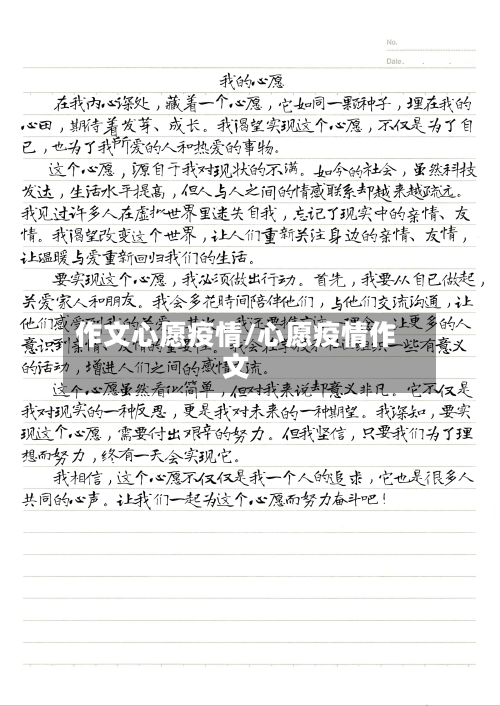 No.
Date. . .
我的心愿
在我内心深处，藏着一个心愿，它如同一颗种子，埋在我的
心田，期待着发芽、成长。我渴望实现这个心愿，不仅是为了自
己，也为了我所爱的人和热爱的事物。
这个心愿，源自于我对现状的不满。如今的社会，虽然科技
发达，生活水平提高，但人与人之间的情感联系却越来越疏远。
我见过许多人在虚拟世界里迷失自我，忘记了现实中的亲情、友
情。我渴望改变这个世界，让人们重新关注身边的亲情、友情，
让温暖与爱重新回归我们的生活。
要实现这个心愿，我必须做出行动。首先，我要从自己做起，
关爱家人和朋友。我会多花时间陪伴他们，与他们交流沟通，让
他们感受到我的关爱。其次，我还要 让更多的人
作文心愿疫情/心愿疫情作
文
意识到亲情、友情的重要性。 一些有意义
的活动，增进人们之间的感情交流。
这个心愿虽然看似简单，但对我来说却意义非凡。它不仅是
我对现实的一种反思，更是我对未来的一种期望。我深知，要实
现这个心愿，需要付出艰辛的努力。但我坚信，只要我们为了理
想而努力，终有一天会实现它。
我相信，这个心愿不仅仅是我一个人的追求，它也是很多人
共同的心声。让我们一起为这个心愿而努力奋斗吧！